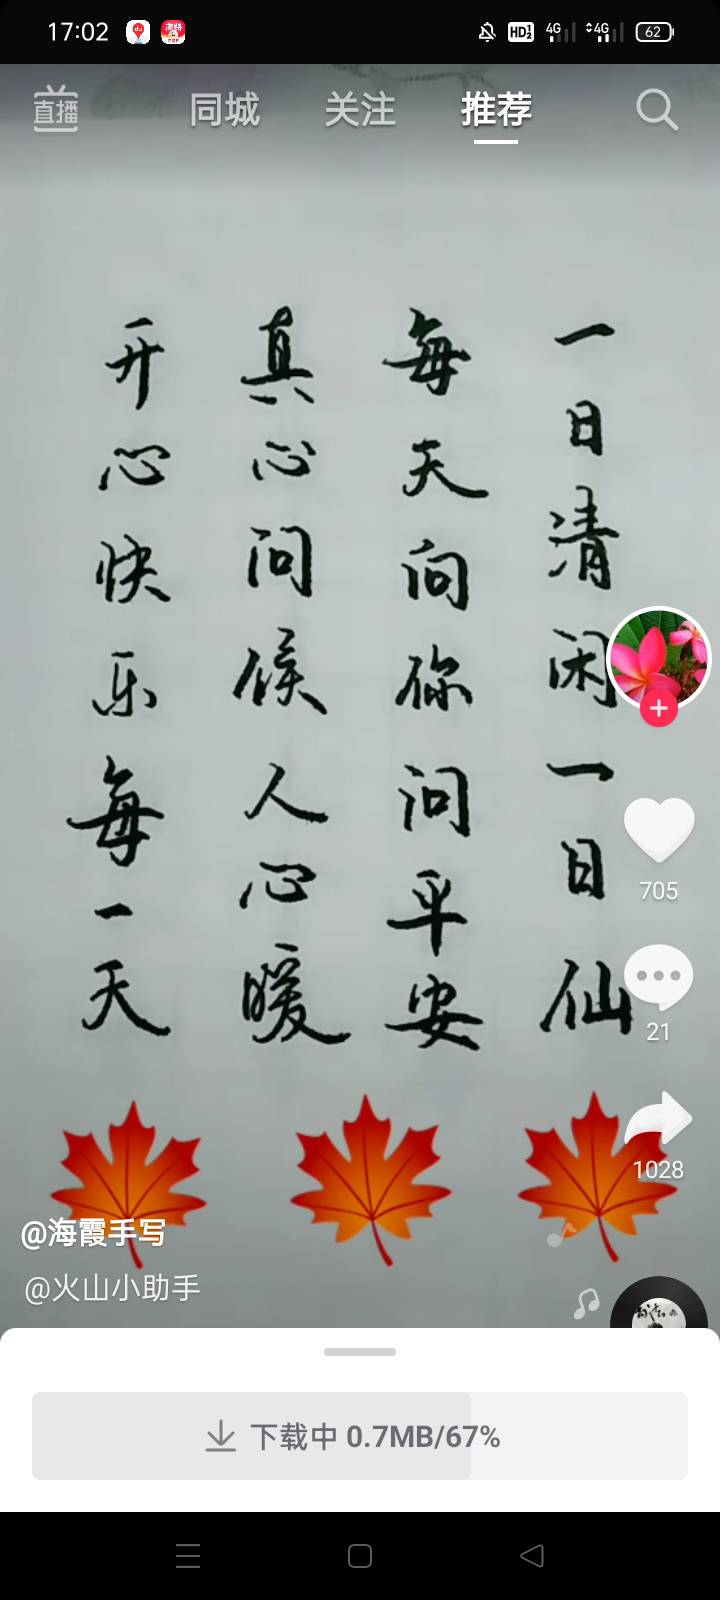 17:02
HD 1 2
4G
4G
62
直播
同城
关注
推荐
一日清闲一日仙
每天向你问平安
真心问候人心暖
开心快乐每一天
705
21
1028
@海霞手写
@火山小助手
下载中 0.7MB/67%